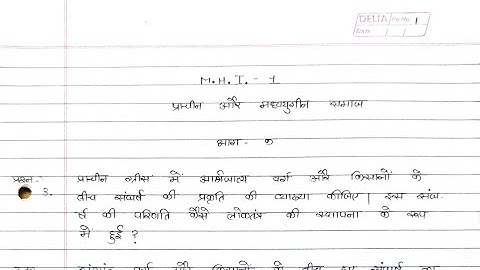 DELTA Pg No. 1
Date
M.H.I. - 1
प्राचीन और मध्ययुगीन समाज
भाग - क
प्रश्न - प्राचीन ग्रीस में अभिजात्य वर्ग और किसानों के
3. बीच संघर्ष की प्रकृति की व्याख्या कीजिए | इस संघ-
र्ष की परिणति कैसे लोकतंत्र की स्थापना के रूप
में हुई ?
वर्ग और किसानों के बीच